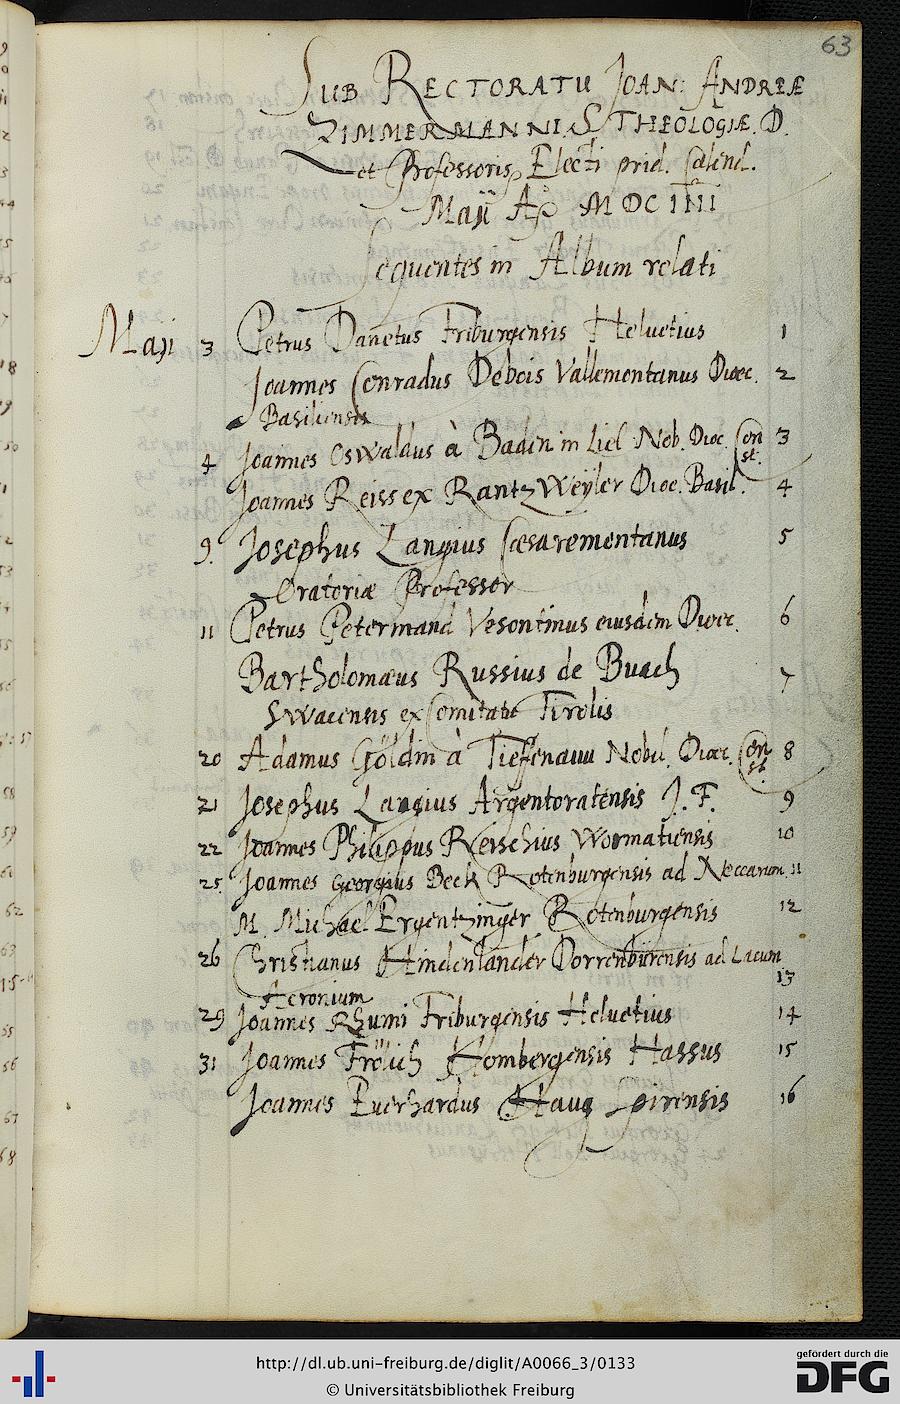 63
SUB RECTORATU JOAN: ANDREÆ
ZIMMERMANNI S. THEOLOGIÆ. D.
et Professoris, Electi prid. Calend.
Maji Aº MDCIIII
Sequentes in Album relati
Maji 3 Petrus Danetus Friburgensis Helvetius 1
Joannes Conradus Debois Vallemontanus Diœc. 2
Basiliensis
4 Joannes Oswaldus à Baden in Liel Nob. Dioc. Con 3
st.
Joannes Reiss ex RantzWeÿler Dioc. Basil. 4
9. Josephus Langius Cæsaremontanus 5
Oratoriæ Professor
11 Petrus Petermand Vesontinus eiusdem Diœc. 6
Bartholomæus Russius de Buach 7
Swacensis ex Comitatu Tirolis
20 Adamus Göldin à Tieffenauu Nobil. Diœc. Con 8
st.
21 Josephus Langius Argentoratensis J. F. 9
22 Joannes Philippus Reischius Wormatiensis 10
25. Joannes Georgius Beck Rotenburgensis ad Neccarum 11
M. Michael Ergentzinger Rotenburgensis 12
26 Christianus Hindenlander Dorrenbürensis ad Lacum
13
Acronium
29 Joannes Rhumi Friburgensis Helvetius 14
31 Joannes Frölich Hombergensis Hassus 15
Joannes Everhardus Haug Spirensis 16
http://dl.ub.uni-freiburg.de/diglit/A0066_3/0133
© Universitätsbibliothek Freiburg
gefördert durch die
DFG